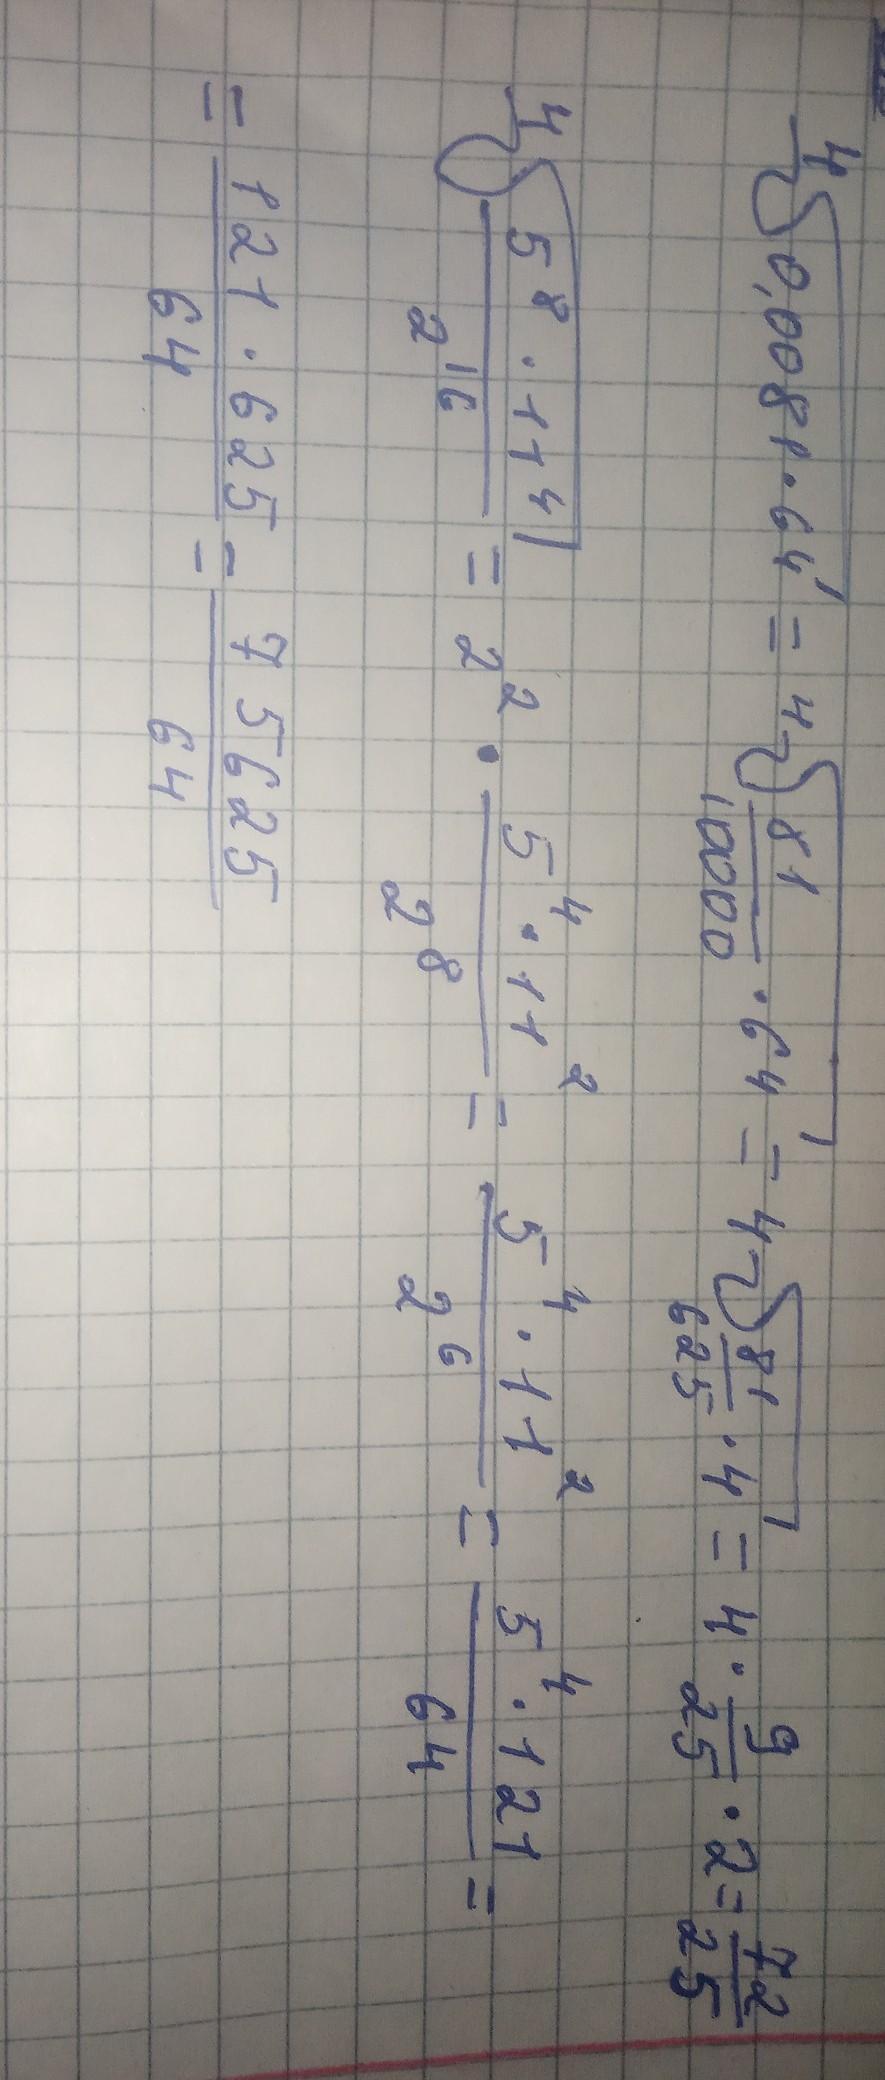 4√0,0081·64 = 4√81/10000 · 64 = 4√81/625 · 4 = 4 · 9/25 · 2 = 72/25
4√5^8 · 11^4/2^16 = 2^2 · 5^4 · 11^2/2^8 = 5^4 · 11^2/2^6 = 5^4 · 121/64 =
= 121 · 625/64 = 75625/64